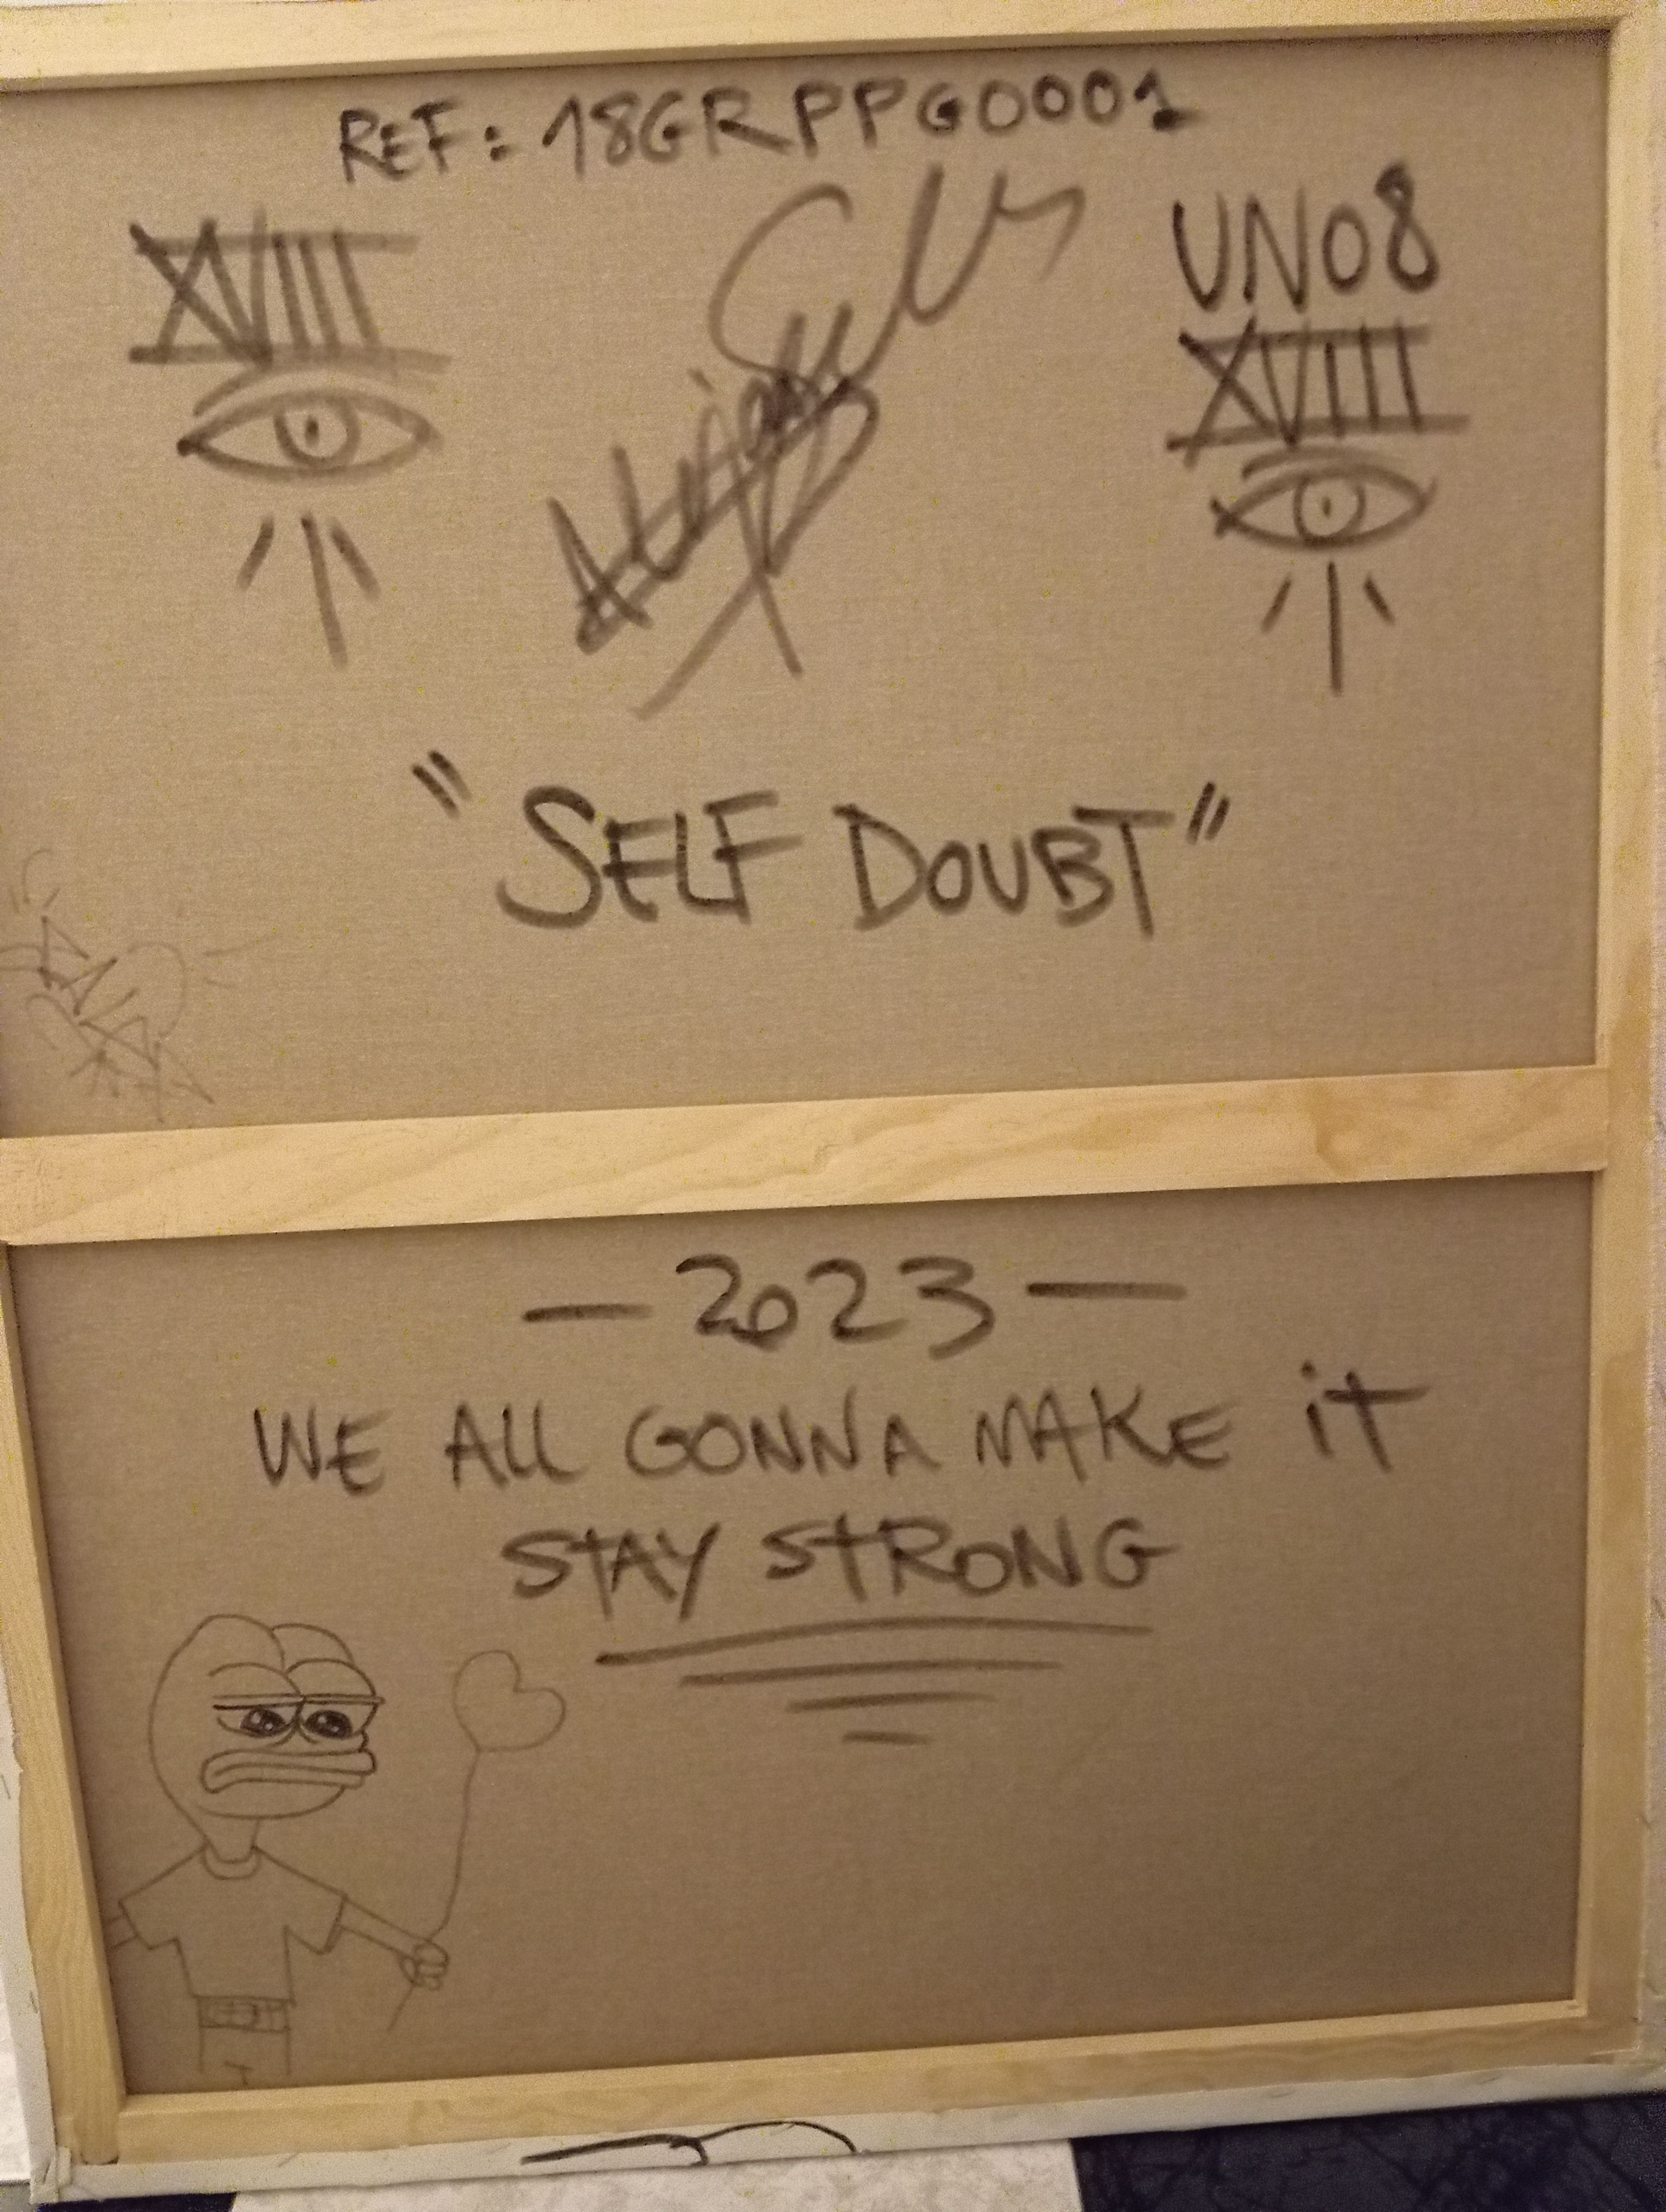 REF: 18GRPPG0001
XVIII
UNO8
XVIII
"SELF DOUBT"
— 2023 —
WE ALL GONNA MAKE it
STAY STRONG